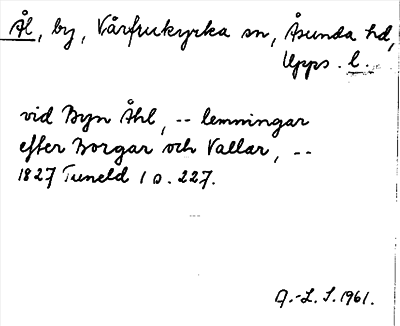 Ål, by, Vårfrukyrka sn, Åsunda hd,
Upps. l.
vid Byn Åhl, -- lemningar
efter Borgar och Vallar, --
1827 Tuneld 1 s. 227.
A.-L. S. 1961.